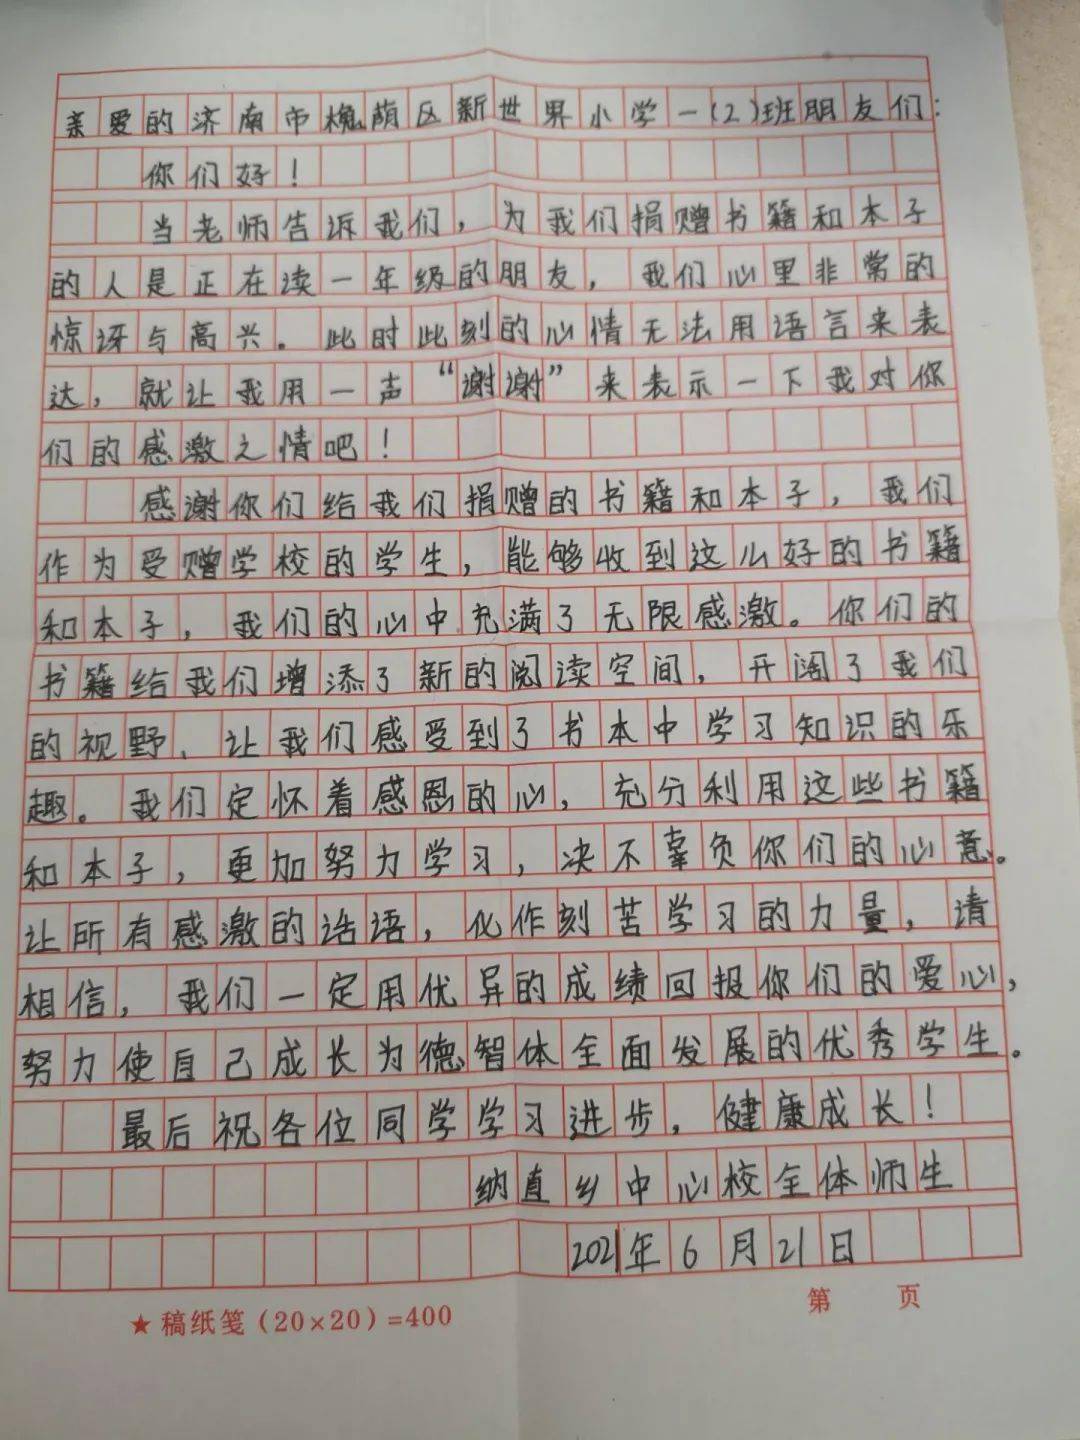 亲爱的济南市槐荫区新世界小学一(2)班朋友们:
你们好!
当老师告诉我们,为我们捐赠书籍和本子
的人是正在读一年级的朋友,我们心里非常的
惊讶与高兴。此时此刻的心情无法用语言来表
达,就让我用一声“谢谢”来表示一下我对你
们的感激之情吧!
感谢你们给我们捐赠的书籍和本子,我们
作为受赠学校的学生,能够收到这么好的书籍
和本子,我们的心中充满了无限感激。你们的
书籍给我们增添了新的阅读空间,开阔了我们
的视野、让我们感受到了书本中学习知识的乐
趣。我们定怀着感恩的心,充分利用这些书籍
和本子,更加努力学习,决不辜负你们的心意。
让所有感激的话语,化作刻苦学习的力量,请
相信,我们一定用优异的成绩回报你们的爱心,
努力使自己成长为德智体全面发展的优秀学生。
最后祝各位同学学习进步,健康成长!
纳直乡中心校全体师生
2021年6月21日
★稿纸笺(20×20)=400
第 页